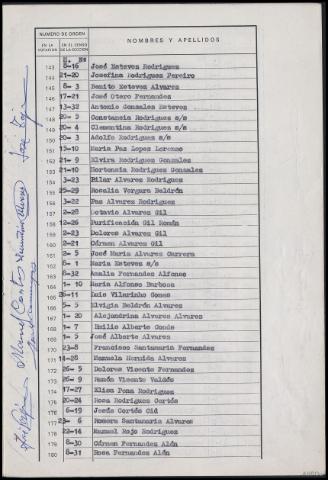 NUMERO DE ORDEN
NOMBRES Y APELLIDOS
EN LA
EN EL CENSO
DE LA SECCION
H. Nº
143 8-16 José Esteves Rodriguez
144 21-20 Josefina Rodriguez Pereiro
145 8- 3 Benito Esteves Alvarez
146 17-21 José Otero Fernandez
147 13-32 Antonio Gonzales Esteves
148 20- 5 Constancia Rodriguez s/s
149 20- 4 Clementina Rodriguez s/s
150 20- 3 Adolfo Rodriguez s/s
151 15-10 Maria Paz Lopez Lorenzo
152 21- 9 Elvira Rodriguez Gonzales
153 21-10 Hortensia Rodriguez Gonzales
154 3-23 Pilar Alvarez Rodriguez
155 25-29 Rosalia Vergara Beldrón
156 3-22 Paz Alvarez Rodriguez
157 2-28 Octavio Alvarez Gil
158 12-26 Purificación Gil Román
159 2-23 Dolores Alvarez Gil
160 2-21 Cármen Alvarez Gil
161 2- 5 José Maria Alvarez Carrera
162 8- 1 Maria Esteves s/s
163 8-32 Amalia Fernandez Alfonso
164 1- 10 Maria Alfonso Barbosa
165 26-11 Luis Vilariñho Gomez
166 5- 5 Elvigia Beldrón Alvarez
167 1- 20 Alejandrina Alvarez Alvarez
168 1- 7 Emilio Alberte Conde
169 1- 5 José Alberte Alvarez
170 23-8 Francisco Santamaria Fernandez
171 14-28 Manuela Hermida Alvarez
172 26- 5 Dolores Vicente Fernandez
173 26- 9 Ramón Vicente Valdés
174 17-27 Elisa Pena Rodriguez
175 20-24 Rosa Rodriguez Cortés
176 6-19 Jesús Cortés Cid
177 23- 6 Romera Santamaria Alvarez
178 22-14 Manuel Rojo Rodriguez
179 8-30 Cármen Fernandez Alén
180 8-31 Rosa Fernandez Alén